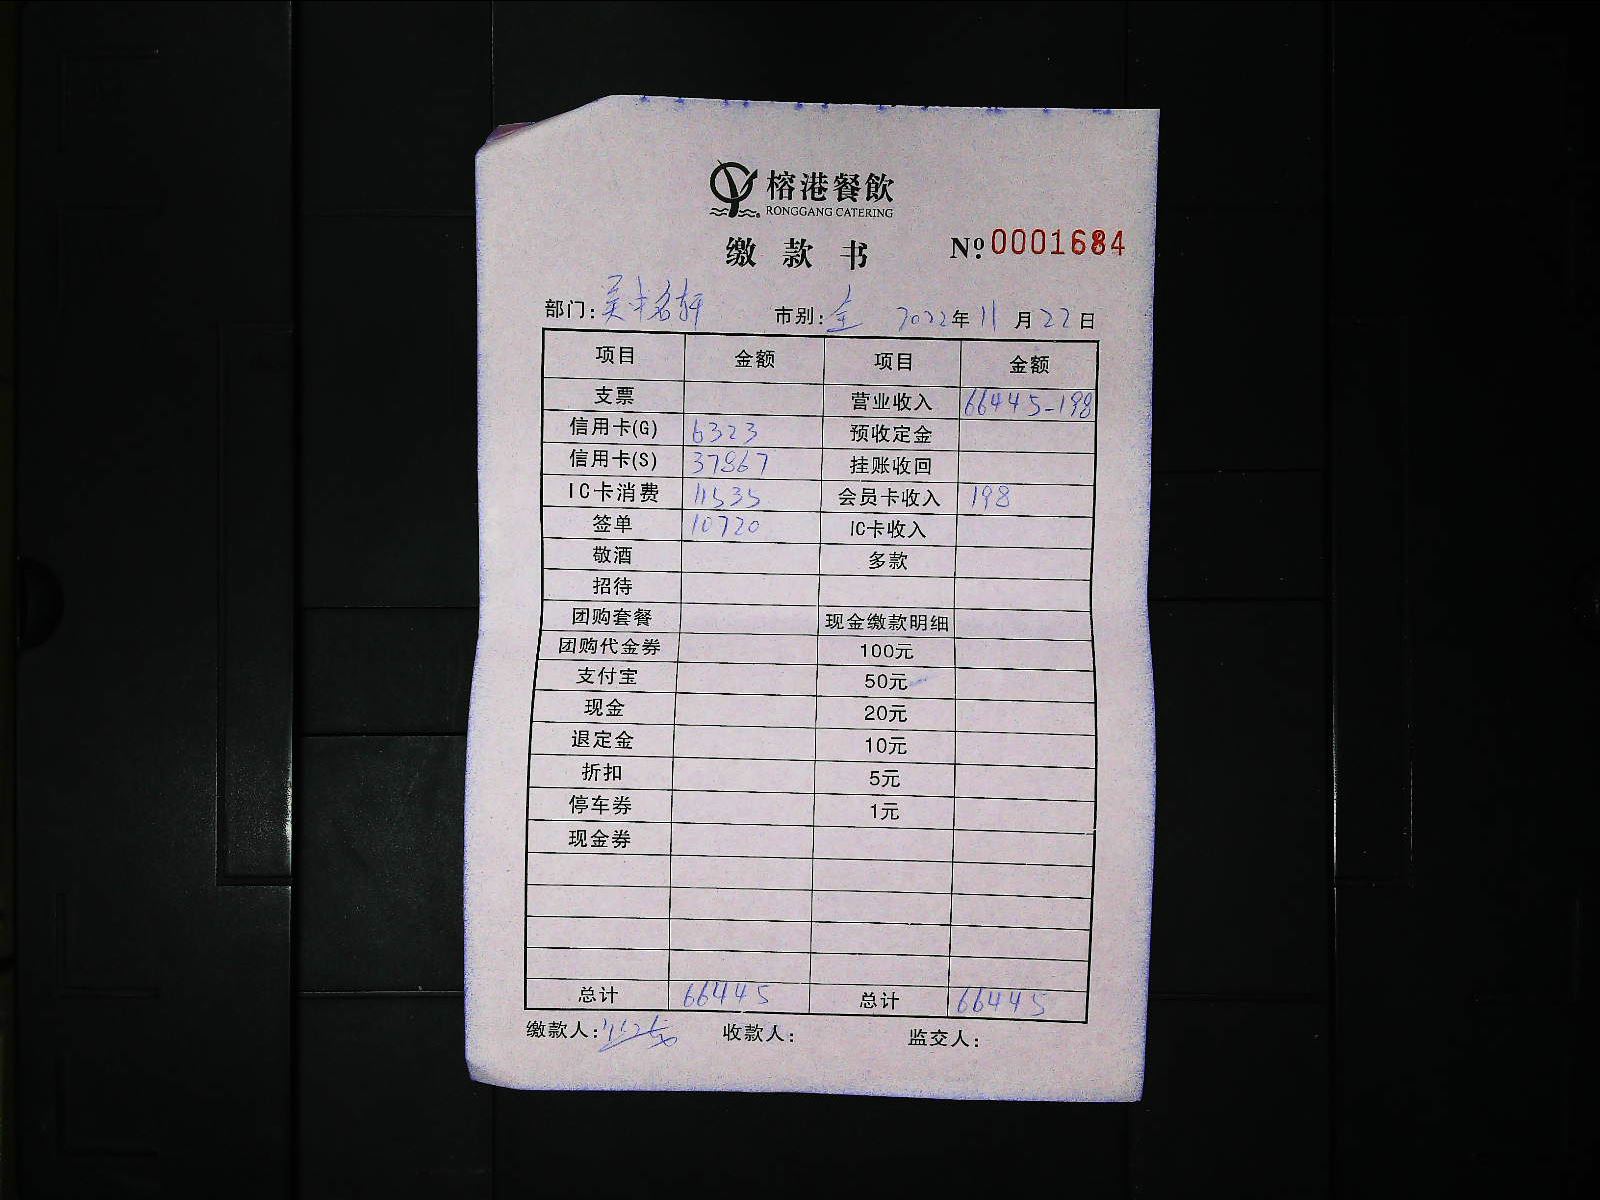 榕港餐飲
RONGGANG CATERING
缴款书 № 0001684
部门: 名轩 市别: 全 2022年11月22日
项目 金额 项目 金额
支票 营业收入 66445-198
信用卡(G) 6323 预收定金
信用卡(S) 37867 挂账收回
IC卡消费 11535 会员卡收入 198
签单 10720 IC卡收入
敬酒 多款
招待
团购套餐 现金缴款明细
团购代金券 100元
支付宝 50元
现金 20元
退定金 10元
折扣 5元
停车券 1元
现金券
总计 66445 总计 66445
缴款人: 收款人: 监交人: